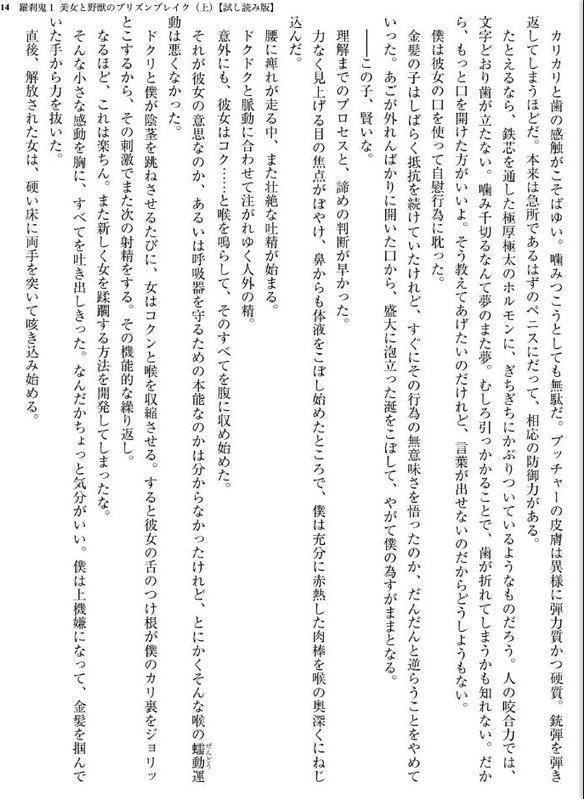 14　羅刹鬼１ 美女と野獣のプリズンブレイク（上）【試し読み版】
カリカリと歯の感触がこそばゆい。噛みつこうとしても無駄だ。ブッチャーの皮膚は異様に弾力質かつ硬質。銃弾を弾き
返してしまうほどだ。本来は急所であるはずのペニスにだって、相応の防御力がある。
たとえるなら、鉄芯を通した極厚極太のホルモンに、ぎちぎちにかぶりついているようなものだろう。人の咬合力では、
文字どおり歯が立たない。噛み千切るなんて夢のまた夢。むしろ引っかかることで、歯が折れてしまうかも知れない。だか
ら、もっと口を開けた方がいいよ。そう教えてあげたいのだけれど、言葉が出せないのだからどうしようもない。
僕は彼女の口を使って自慰行為に耽った。
金髪の子はしばらく抵抗を続けていたけれど、すぐにその行為の無意味さを悟ったのか、だんだんと逆らうことをやめて
いった。あごが外れんばかりに開いた口から、盛大に泡立った涎をこぼして、やがて僕の為すがままとなる。
――この子、賢いな。
理解までのプロセスと、諦めの判断が早かった。
力なく見上げる目の焦点がぼやけ、鼻からも体液をこぼし始めたところで、僕は充分に赤熱した肉棒を喉の奥深くにねじ
込んだ。
腰に痺れが走る中、また壮絶な吐精が始まる。
ドクドクと脈動に合わせて注がれゆく人外の精。
意外にも、彼女はコク……と喉を鳴らして、そのすべてを腹に収め始めた。
それが彼女の意思なのか、あるいは呼吸器を守るための本能なのかは分からなかったけれど、とにかくそんな喉の蠕動運
ぜんどう
動は悪くなかった。
ドクリと僕が陰茎を跳ねさせるたびに、女はコクンと喉を収縮させる。すると彼女の舌のつけ根が僕のカリ裏をジョリッ
とこするから、その刺激でまた次の射精をする。その機能的な繰り返し。
なるほど、これは楽ちん。また新しく女を蹂躙する方法を開発してしまったな。
そんな小さな感動を胸に、すべてを吐き出しきった。なんだかちょっと気分がいい。僕は上機嫌になって、金髪を掴んで
いた手から力を抜いた。
直後、解放された女は、硬い床に両手を突いて咳き込み始める。